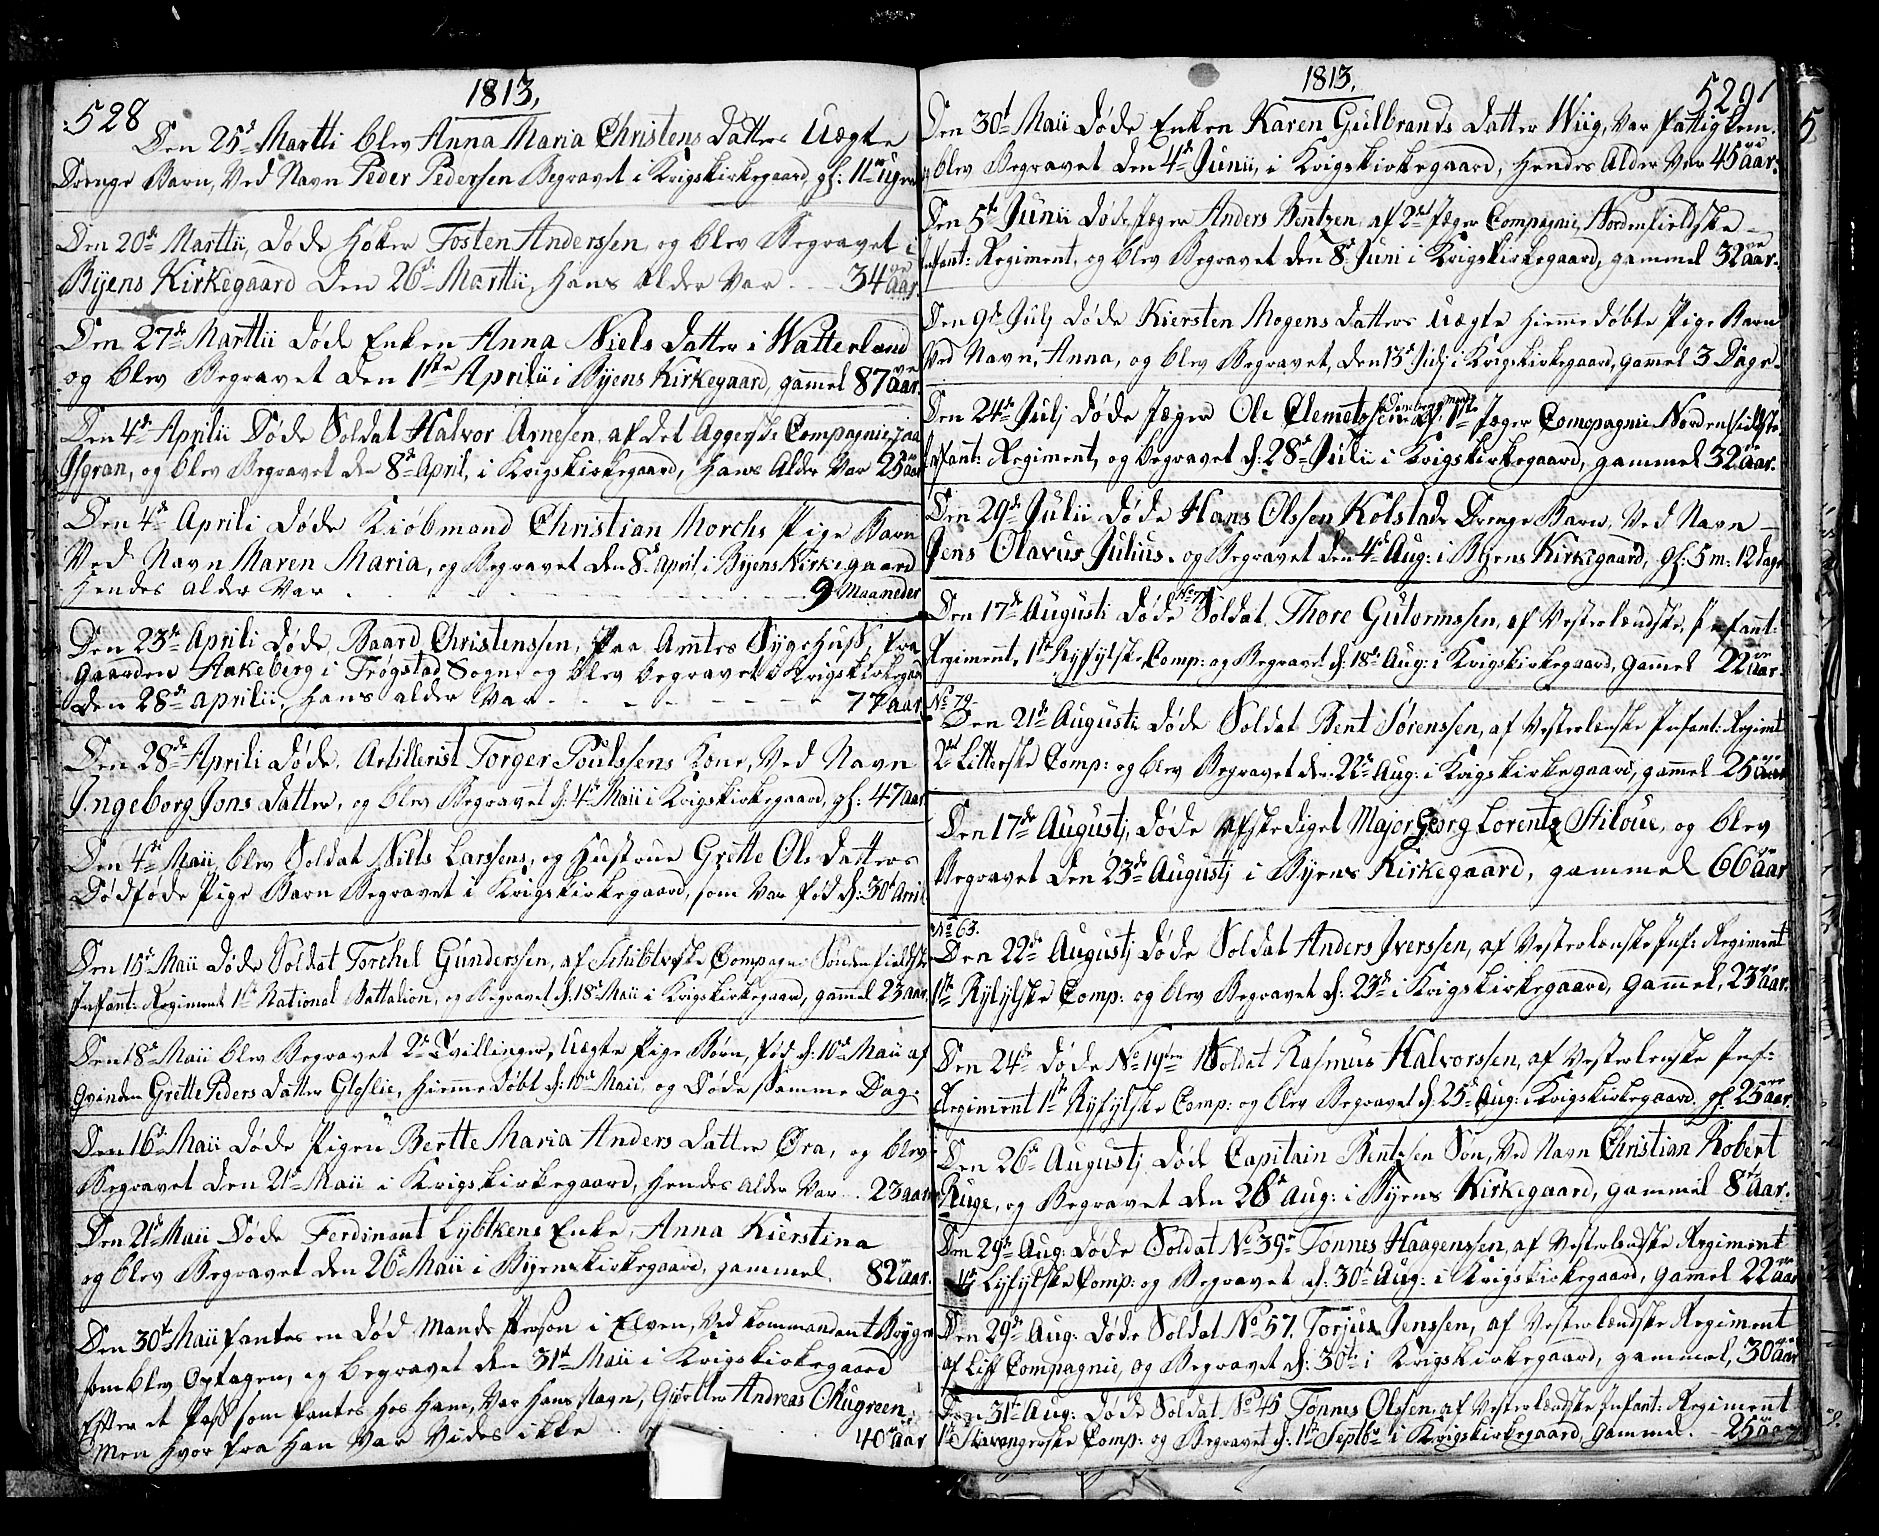 528
1813,
Den 25de Martti blev Anna Maria Christens datters Uægte
Drenge Barn, Ved Navn Peder Pedersen Begravet i Krigskirkegaard, gl: 11 uger
Den 20de Marttii, døde Høker Tosten Anderssen, og blev Begravet i
Byens Kirkegaard den 26de Marttii, hans alder Var 34 aar
Den 27de Marttii døde Enken Anna Niels datter i Watterland
og blev Begravet den 1ste Aprilii i Byens Kirkegaard, gammel 87 aar.
Den 4de Aprilii Døde Soldat Halvor Arnesen, af det Aggerske Compagnie, paa
og blev Begravet den 8de April, i Krigskirkegaard, hans Alder Var 25 aar
Den 4de Aprili døde Kiøbmand Christian Morchs Pige Barn
Ved Navn Maren Maria, og Begravet den 8de April i Byens Kirkegaard
hendes alder Var 9 Maaneder
Den 23de Aprili døde, Baard Christenssen, Paa Amtes Sygehuss, fra
gaarden Hakeberg i Trøgstad Sogn og blev begravet i Krigskirkegaard
den 28de aprilii, hans alder Var 77 aar.
Den 28de Aprili døde, Artillerist Torger Poulssens Kone, Ved Navn
Ingeborg Jons datter, og blev Begravet d: 4de Maii i Krigskirkegaard, gl: 47 aar.
Den 4de Maii, blev Soldat Nills Larssens, og Hustrue Grette Ols datters
Dødføde Pige Barn Begravet i Krigskirkegaard, som Var fød d: 30t April
Den 15de Maii døde Soldat Torchel Gunderssen, af Compagn: Søndenfieldske
Infant: Regiment 1ste National Battalion, og Begravet d: 18de Maii i Krigskirkegaard, gammel 23 aar.
Den 18de Maii blev Begravet 2de Tvillinger, Uægte Pige Børn, fød d: 10de Maii af
Qvinden Grette Peders datter Gloslie, hiemme døbt d: 10de Maii, og døde samme Dag.
Den 16de Maii døde Pigen Bertte Maria Anders datter Øra, og blev
Begravet den 21de Maii i Krigskirkegaard, hendes alder Var 23 aar
Den 21de Maii døde Ferdinant Lybtkens Enke, Anna Kierstina
og blev Begravet den 26de Maii i Byenskirkegaard, gammel. 82 aar.
Den 30t Maii fantes en død Mands Person i Elven, Ved Kommandant Bryggen
som blev Optagen, og begravet den 31te Maii i Krigskirkegaard
Efter et Pass som fantes hos ham, Var hans Navn, Andreas
Men hvor fra han Var Vides ikke 40 aar
1813,
529
Den 30t Maii døde Enken Karen Gulbrands datter Wiig, Var Fattiglem.
og blev Begravet den 4de Junii, i Krigskirkegaard, hendes Alder Var 45 aar.
Den 5te Junii døde Jæger Anders Bentzen, af 2det Jæger Compagnii, Nordenfieldske
Infant: Regiment, og blev Begravet den 8de Juni i Krigskirkegaard, gammel 32 aar.
Den 9de Julj døde Kiersten Mogens datters Uægte hiemmedøbte Pige Barn
Ved Navn, Anna, og blev Begravet, den 13de Julj i Krigskirkegaard, gammel 3 Dage.
Den 24de Julj døde Jæger Ole Clemetssen af 1ste Jæger Compagnie Nordenfieldske
Infant: Regiment, og begravet d: 28de Julii i Krigskirkegaard, gammel 32 aar.
Den 29de Julii døde Hans Olsson Kolstads Drenge Barn, Ved Navn
Jens Olavus Julius. og Begravet den 4de Aug: i Byens Kirkegaard, gl: 5 m: 12 dage
Den 17de Augusti døde Soldat, Thore Gutormssen, af Vesterlændske, Infant:
Regiment, 1ste Ryfylske Comp: og Begravet d: 18de Aug: i Krigskirkegaard, gammel 22 aar.
No 79.
Den 21de Augusti døde Soldat Bent Sørenssen, af Vesterlænske Infant: Regimt
2det Litterske Comp: og blev Begravet den: 22de Aug: i Krigskirkegaard, gammel 25 aar
Den 17de Augustj, døde afskediget Major Georg Lorentz Stiloue, og blev
Begravet den 23de Augustj i Byens Kirkegaard, gammel 66 aar
No 63.
Den 22de Augustj døde Soldat Anders Iverssen, af Vesterlenske Inf: Regiment
1ste Ryfylske Comp: og blev Begravet d: 23de i Krigskirkegaard, gammel, 23 aar.
Den 24de døde No 19ten Soldat Rasmus Halvorssen, af Vesterlenske Inf:
Regiment 1ste Ryfylske Comp: og blev Begravet d: 25de Aug: i Krigskirkegaard, gl: 25 aar.
Den 26de Augustj, døde Capitain Bentzsen Søn, Ved Navn Christian Robert
Ruge, og Begravet den 28de Aug: i Byens Kirkegaard, gammel 8te aar.
Den 29de Aug: døde Soldat No 39. Tonnes Haagenssen, af Vesterlendske Regiment
1ste Lyfylske Comp: og Begravet d: 30te Aug: i Krigskirkegaard, gammel 22 aar
Den 29de Aug: døde Soldat No 57. Torjus Jenssen, af Vesterlændske Regiment
af Liff Compagnie, og Begravet d: 30te i Krigskirkegaard, gammel, 30 aar
Den 31te Aug: døde Soldat No 45 Tonnes Olssen, af Vesterlændske Infant: Regiment
1ste Stavangerske Comp: og Begravet d: 1ste Septbr i Krigskirkegaard, gammel. 25 aar